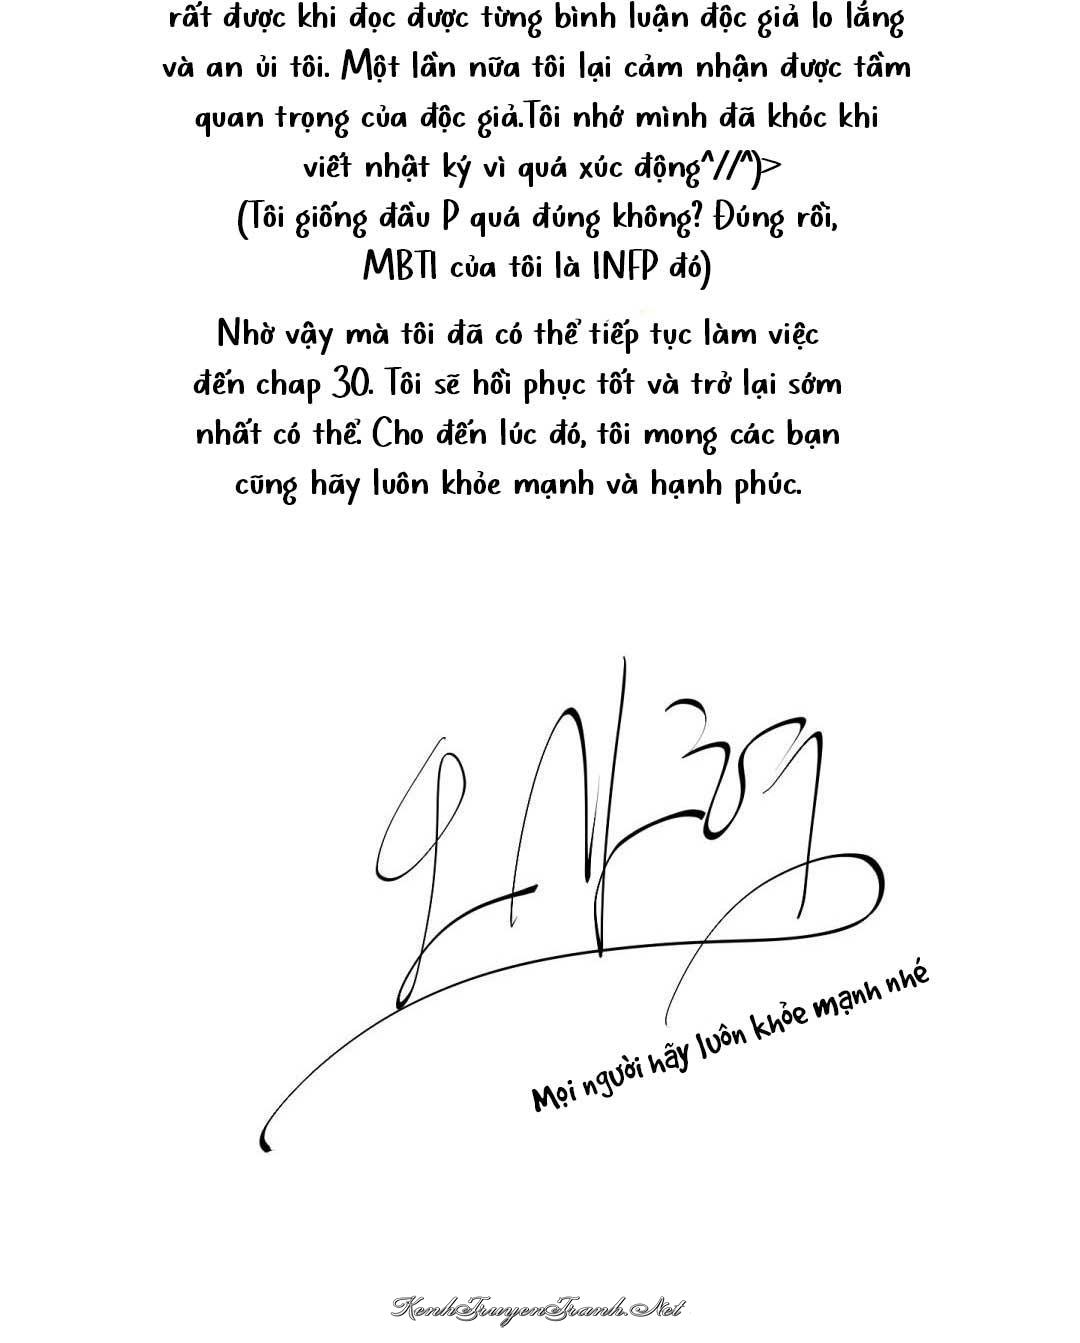 rất được khi đọc được từng bình luận độc giả lo lắng
và an ủi tôi. Một lần nữa tôi lại cảm nhận được tầm
quan trọng của độc giả.Tôi nhớ mình đã khóc khi
viết nhật ký vì quá xúc động^//^)>
(Tôi giống đầu P quá đúng không? Đúng rồi,
MBTI của tôi là INFP đó)
Nhờ vậy mà tôi đã có thể tiếp tục làm việc
đến chap 30. Tôi sẽ hồi phục tốt và trở lại sớm
nhất có thể. Cho đến lúc đó, tôi mong các bạn
cũng hãy luôn khỏe mạnh và hạnh phúc.
Mọi người hãy luôn khỏe mạnh nhé
KenhTruyenTranh.Net